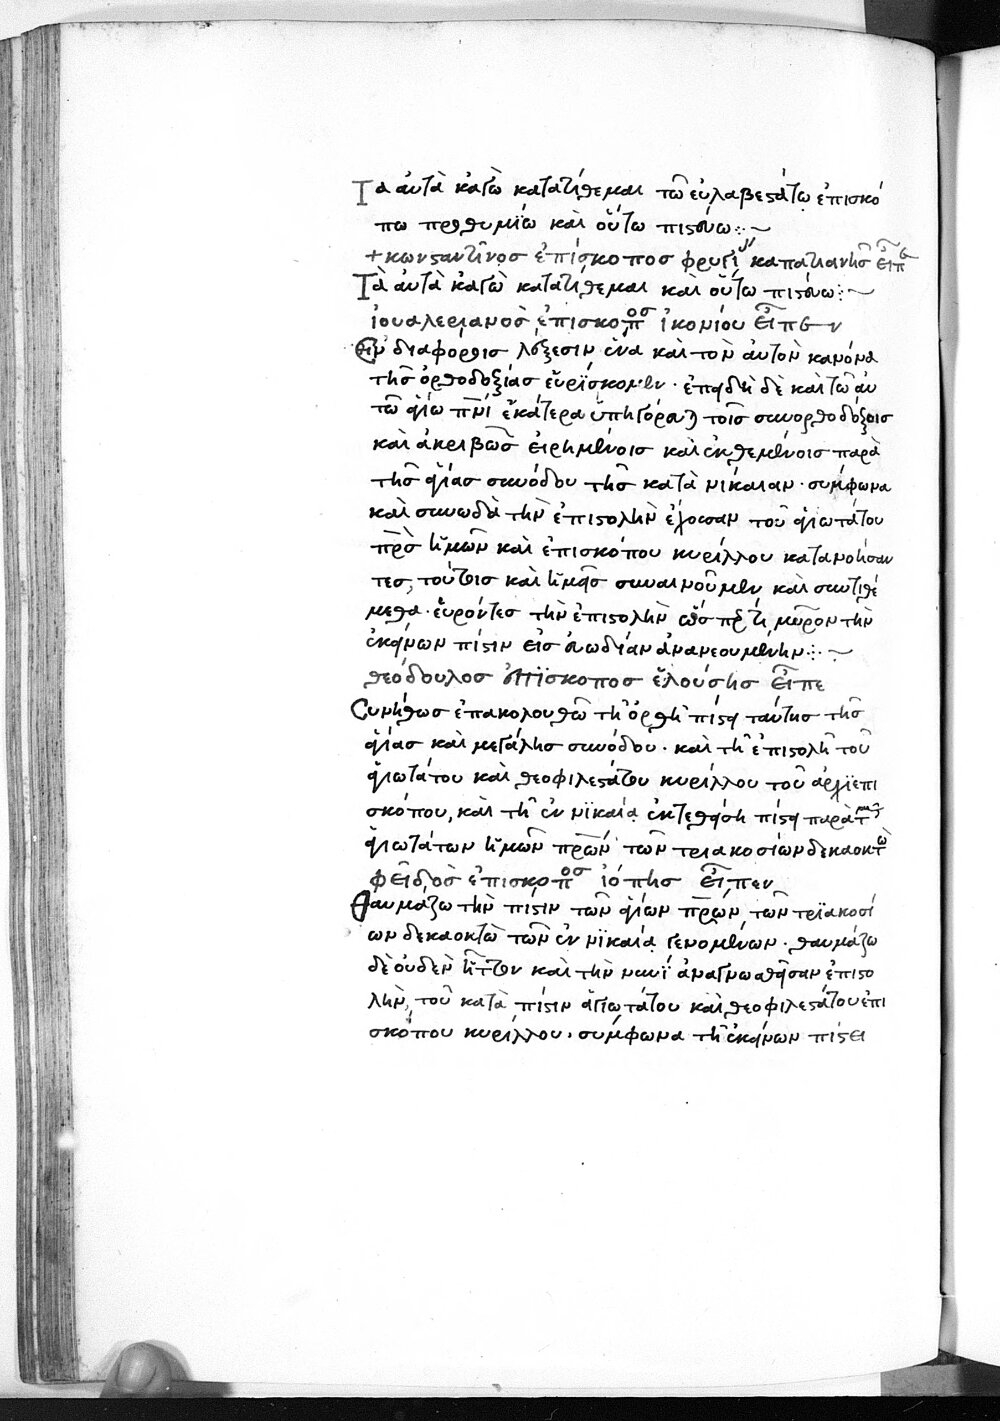 Τὰ αὐτὰ κἀγὼ κατατίθεμαι τῶ εὐλαβεστάτω ἐπισκό
πω προθυμίω καὶ οὕτω πιστεύω:~
+ κωνσταντῖνος ἐπίσκοπος φρυγί καπατιανῆς εἶπ
Τὰ αὐτὰ κἀγὼ κατατίθεμαι καὶ οὕτω πιστεύω:~
ἰουαλεριανὸς ἐπισκοπος ἰκονίου εἶπεν
Ἐν διαφόροις λέξεσιν ἕνα καὶ τὸν αὐτὸν κανόνα
τῆς ὀρθοδοξίας εὑρΐσκομεν · ἐπειδὴ δὲ καὶ τῶ αὐ
τῶ ἁγίω πνι ἑκάτερα ὑπηγόρευται τοῖς συνορθοδόξοις
καὶ ἀκριβῶς εἰρημένοις καὶ ἐκτεθεμένοις παρὰ
τῆς ἁγίας συνόδου τῆς κατὰ νίκαιαν · σύμφωνα
καὶ συνωδὰ τὴν ἐπιστολὴν ἔχουσαν τοῦ ἁγιωτάτου
πρς ἡμῶν καὶ ἐπισκόπου κυρίλλου κατανοήσαν
τες, τούτοις καὶ ἡμεῖς συναινοῦμεν καὶ συντιθέ
μεθα · εὑρόντες τὴν ἐπιστολὴν ὥς περ τι μῦρον τὴν
ἐκείνων πίστιν εἰς εὐωδίαν ἀνανεουμένην:~
θεόδουλος ἐπΐσκοπος ἐλούσης εἶπε
Συνήθως ἐπακολουθῶ τῆ ὀρθῆ πίστει ταύτης τῆς
ἁγίας καὶ μεγάλης συνόδου · καὶ τῆ ἐπιστολῆ τοῦ
ἁγιωτάτου καὶ θεοφιλεστάτου κυρίλλου τοῦ ἀρχϊεπι
σκόπου, καὶ τῆ ἐν νϊκαία ἐκτεθείση πίστει παρὰ τῶν
ἁγιωτάτων ἡμῶν πρων τῶν τριακοσίων δεκαοκτὼ
φεῖδος ἐπισκοπος ἰόπης εἶπεν
Θαυμάζω τὴν πίστιν τῶν ἁγίων πρων, τῶν τρϊακοσί
ων δεκαοκτὼ τῶν ἐν νϊκαία γενομένων · θαυμάζω
δὲ οὐδὲν ἧττον καὶ τὴν νυνῒ ἀναγνωσθεῖσαν ἐπιστο
λὴν, τοῦ κατὰ πίστιν ἁγιωτάτου καὶ θεοφιλεστάτου ἐπι
σκόπου κυρίλλου · σύμφωνα τῆ ἐκείνων πίστει